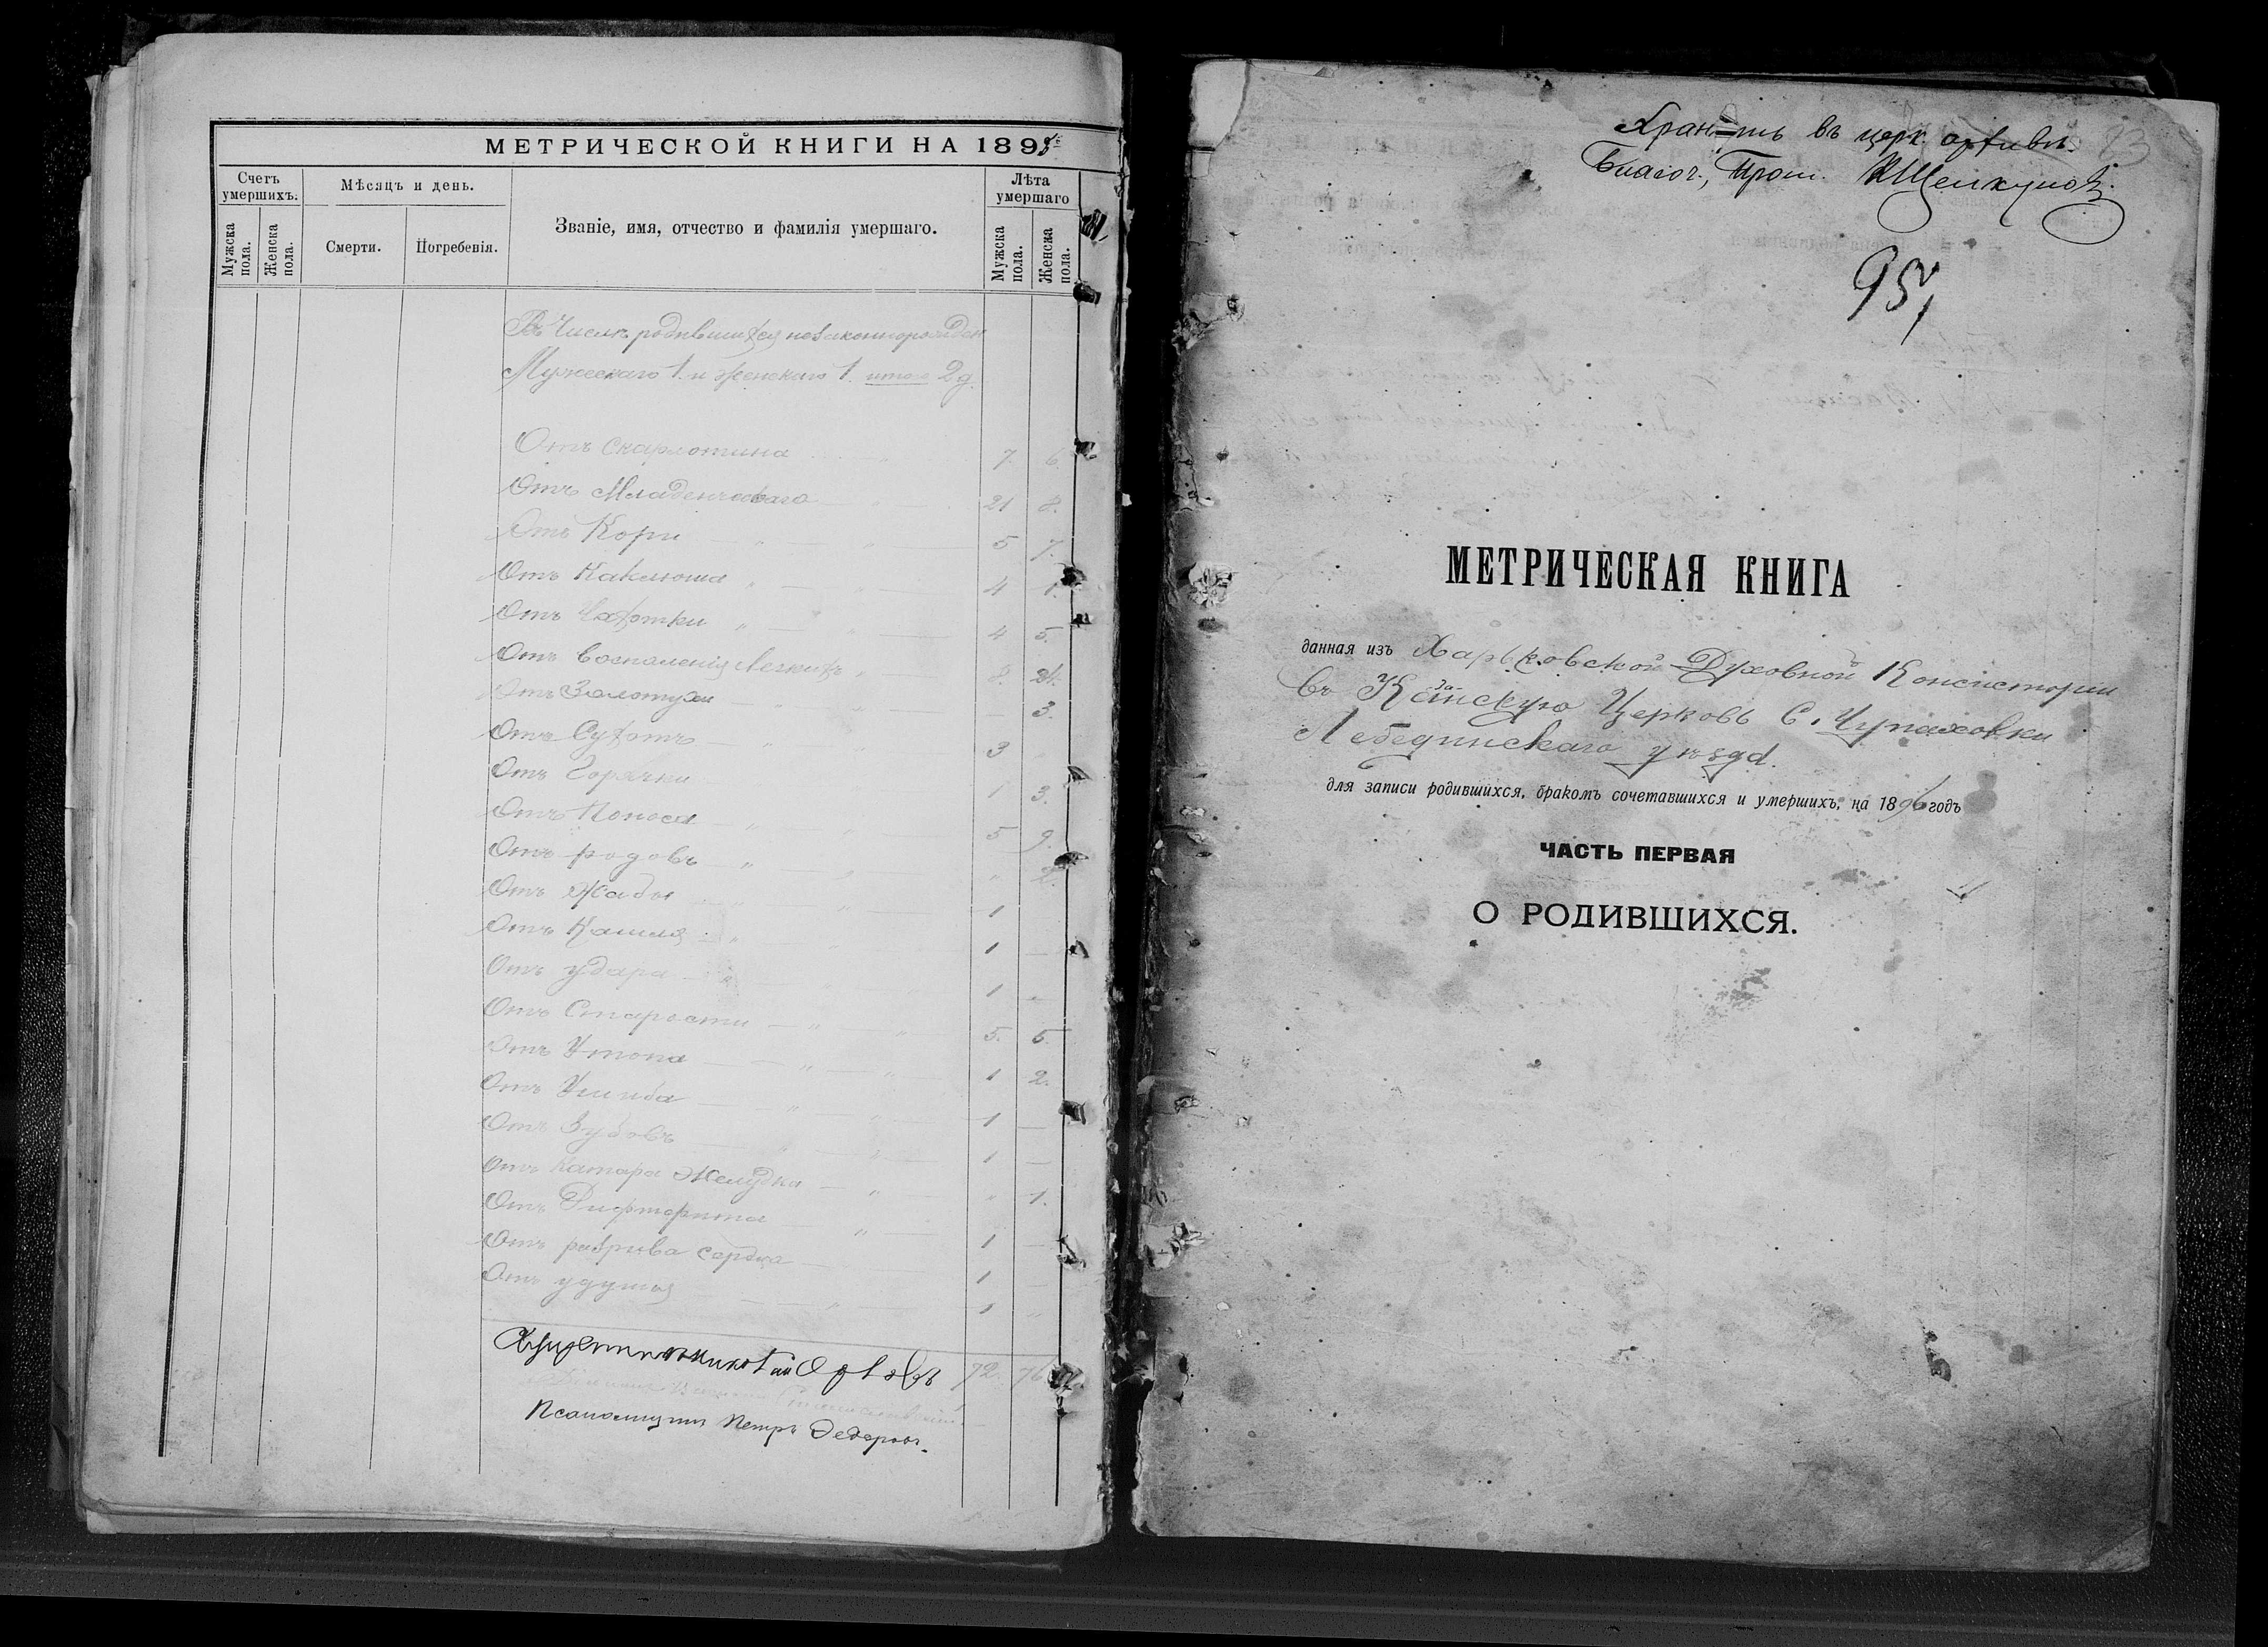 МЕТРИЧЕСКОЙ КНИГИ НА 1895
Счетъ умершихъ.
Мѣсяцъ и день.
Званіе, имя, отчество и фамилія умершаго.
Лѣта умершаго
Мужска пола.
Женска пола.
Смерти.
Погребенія.
Мужска пола.
Женска пола.
Въ Числѣ родившихся незаконнорожден
Мужескаго 1. и Женскаго 1. итого 2 д.
Отъ Скарлотина 7. 6.
Отъ Младенческаго 21 8.
Отъ Кори 5 7.
Отъ Каклюша 4 1.
Отъ Чахотки 4 5.
Отъ воспаленія Легкихъ 8.
Отъ Золотухи — 3.
Отъ Сухотъ 3
Отъ Горячки 1 3.
Отъ Поноса 5 9.
Отъ родовъ " 2.
Отъ Жабы 1
Отъ Кашля 1 —
Отъ удара 1
Отъ Старости 5. 5.
Отъ Утопа 1 2.
Отъ Ушиба 1 —
Отъ Зубовъ 1 —
Отъ Катара Желудка " 1.
Отъ Дифторита 1
Отъ разрива сердца 1
Отъ удушья 1
Священникъ Николай 72. 76
Псаломщикъ Петръ Федоровъ.
Хранить въ церк. архивѣ.
Благоч., Прот. Щелкуновъ.
95,
МЕТРИЧЕСКАЯ КНИГА
данная изъ Харьковской Духовной Консисторіи
въ Казанскую Церковь С. Чупаховки
Лебединскаго уѣзда.
для записи родившихся, бракомъ сочетавшихся и умершихъ, на 1896 годъ
ЧАСТЬ ПЕРВАЯ
О РОДИВШИХСЯ.